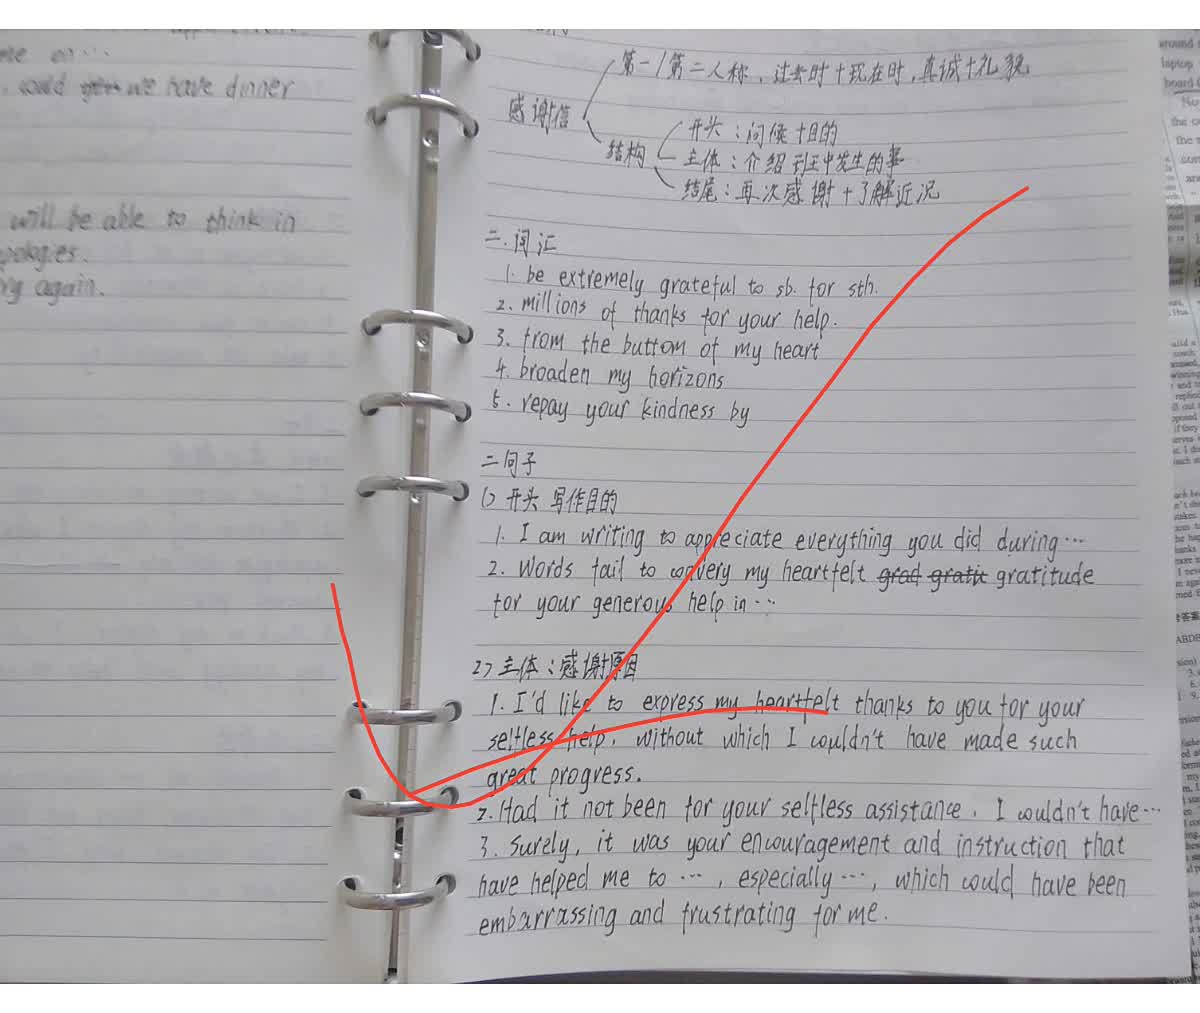 me on…
would we have dinner
will be able to think in
pologies.
ng again.
第一/第二人称，过去时+现在时，真诚+礼貌
感谢信
开头：问候+目的
结构
主体：介绍班中发生的事
结尾：再次感谢+了解近况
二.词汇
1. be extremely grateful to sb. for sth.
2. millions of thanks for your help.
3. from the buttom of my heart
4. broaden my horizons
5. repay your kindness by
二句子
1) 开头 写作目的
1. I am writing to appreciate everything you did during…
2. Words fail to convery my heartfelt grad gratit gratitude
for your generous help in…
2) 主体：感谢原因
1. I'd like to express my heartfelt thanks to you for your
selfless help, without which I couldn't have made such
great progress.
2. Had it not been for your selfless assistance, I wouldn't have…
3. Surely, it was your encouragement and instruction that
have helped me to …, especially…, which could have been
embarrassing and frustrating for me.